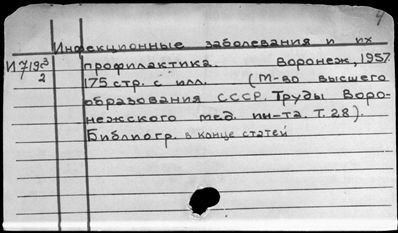 Инфекционные заболевания и их
И719 3/2 профилактика. Воронеж, 1957.
175 стр. с илл. (М-во высшего
образования СССР. Труды Воро-
нежского мед. ин-та. Т. 28).
Библиогр. в конце статей